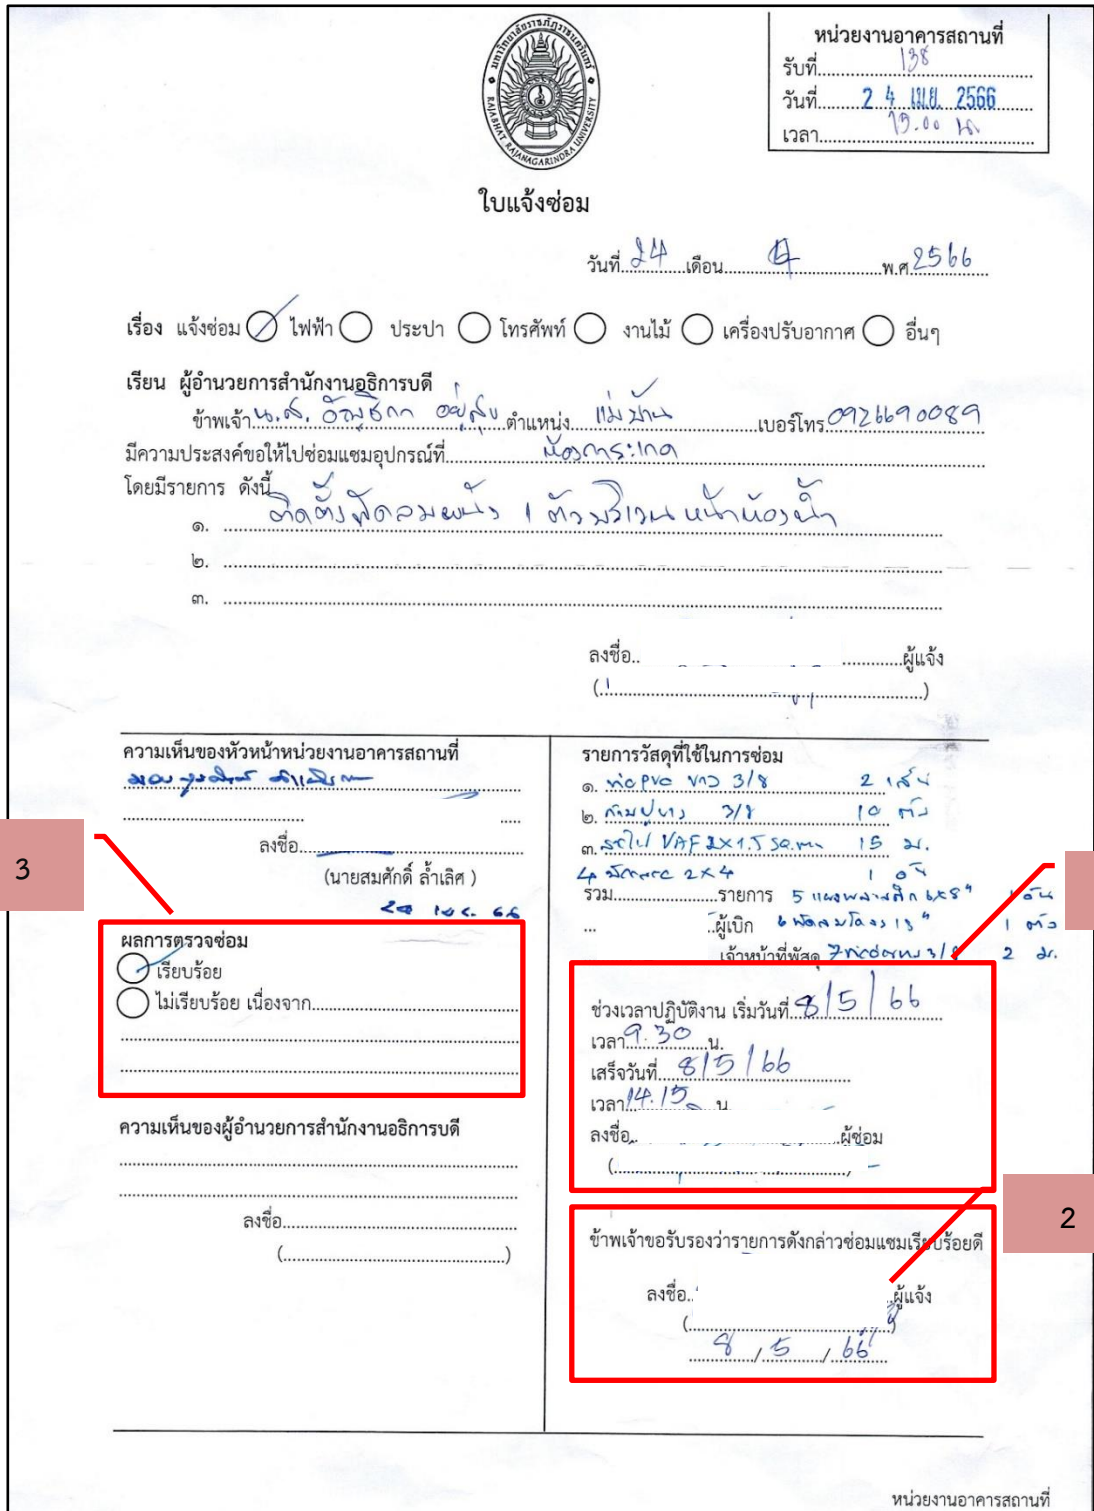 มหาวิทยาลัยราชภัฏราชนครินทร์
RAJABHAT RAJANAGARINDRA UNIVERSITY
หน่วยงานอาคารสถานที่
รับที่ 138
วันที่ 24 เม.ย. 2566
เวลา 13.00 น.
ใบแจ้งซ่อม
วันที่ 24 เดือน 4 พ.ศ 2566
เรื่อง แจ้งซ่อม ไฟฟ้า ประปา โทรศัพท์ งานไม้ เครื่องปรับอากาศ อื่นๆ
เรียน ผู้อำนวยการสำนักงานอธิการบดี
ข้าพเจ้า น.ส. อยู่สุข ตำแหน่ง แม่บ้าน เบอร์โทร 0926690089
มีความประสงค์ขอให้ไปซ่อมแซมอุปกรณ์ที่
โดยมีรายการ ดังนี้
๑. ติดตั้งพัดลมผนัง 1 ตัวบริเวณหน้าห้องน้ำ
๒.
๓.
ลงชื่อ ผู้แจ้ง
( )
ความเห็นของหัวหน้าหน่วยงานอาคารสถานที่
ลงชื่อ
(นายสมศักดิ์ ล้ำเลิศ )
24 เม.ย. 66
3
ผลการตรวจซ่อม
เรียบร้อย
ไม่เรียบร้อย เนื่องจาก
ความเห็นของผู้อำนวยการสำนักงานอธิการบดี
ลงชื่อ
( )
รายการวัสดุที่ใช้ในการซ่อม
๑. ท่อ PVC ขาว 3/8 2 เส้น
๒. ก้ามปูขาว 3/8 10 ตัว
๓. สายไฟ VAF 2x1.5 sq.mm 15 ม.
4 2x4 1 อัน
รวม รายการ 5 แผงพลาสติก 6x8" 1 อัน
ผู้เบิก 6 พัดลมโคจร 1 ตัว
เจ้าหน้าที่พัสดุ 3/8 2 ม.
ช่วงเวลาปฏิบัติงาน เริ่มวันที่ 8/5/66
เวลา 9.30 น.
เสร็จวันที่ 8/5/66
เวลา 14.15 น
ลงชื่อ ผู้ซ่อม
( )
2
ข้าพเจ้าขอรับรองว่ารายการดังกล่าวซ่อมแซมเรียบร้อยดี
ลงชื่อ ผู้แจ้ง
( )
8 / 5 / 66
หน่วยงานอาคารสถานที่